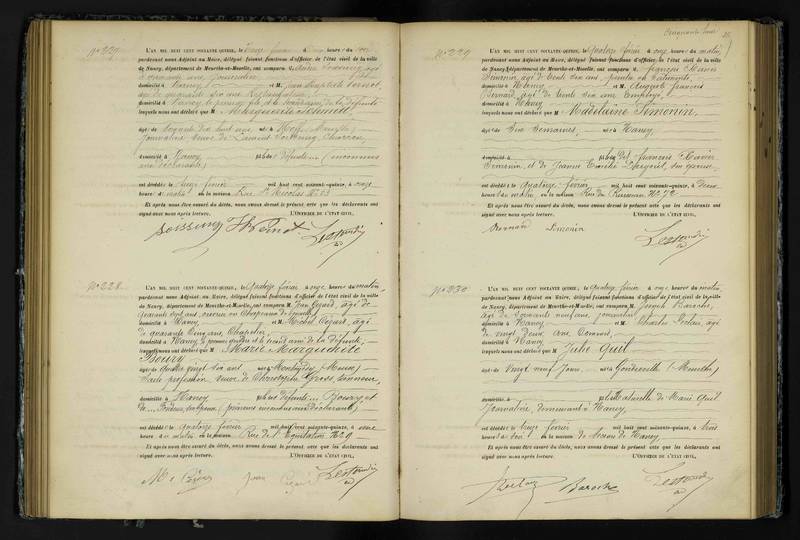 N° 227
L'AN MIL HUIT CENT SOIXANTE-QUINZE, le treize février à onze heures du
pardevant nous Adjoint au Maire, délégué faisant fonctions d'officier de l'état civil de la ville
de Nancy, département de Meurthe-et-Moselle, ont comparu M.
domicilié à Nancy et M. Jean Baptiste
domicilié à Nancy, le premier fils et le de la défunte
lesquels nous ont déclaré que M Marguerite Schmitt
âgée de soixante dix huit ans, né à
journalière veuve de
domicilié à Nancy fille des défunts (inconnus
aux déclarants)
est décédée le treize février mil huit cent soixante-quinze, à onze
heures du matin en la maison Rue St Nicolas N° 53
Et après nous être assuré du décès, nous avons dressé le présent acte que les déclarants ont
signé avec nous après lecture. L'OFFICIER DE L'ÉTAT CIVIL,
N° 228
L'AN MIL HUIT CENT SOIXANTE-QUINZE, le quatorze février à onze heures du matin,
pardevant nous Adjoint au Maire, délégué faisant fonctions d'officier de l'état civil de la ville
de Nancy, département de Meurthe-et-Moselle, ont comparu M. Jean Gérard, âgé de
quarante ans, ouvrier en Chapeaux de
domicilié à Nancy et M. Michel âgé
de quarante cinq ans, Chapelier
domicilié à Nancy, le premier gendre et le second ami de la défunte,
lesquels nous ont déclaré que M Marie Marguerite
Boury
âgée de quatre vingt six ans né à Montmédy (Meuse)
Sans profession veuve de Christophe Gross, tanneur,
domicilié à Nancy fille des défunts ... Boury et
de ... (prénoms inconnus aux déclarants)
est décédée le quatorze février mil huit cent soixante-quinze, à une
heure du matin en la maison Rue de l'Equitation N° 9
Et après nous être assuré du décès, nous avons dressé le présent acte que les déclarants ont
signé avec nous après lecture. L'OFFICIER DE L'ÉTAT CIVIL,
N° 229
L'AN MIL HUIT CENT SOIXANTE-QUINZE, le quatorze février à onze heures du matin,
pardevant nous Adjoint au Maire, délégué faisant fonctions d'officier de l'état civil de la ville
de Nancy, département de Meurthe-et-Moselle, ont comparu M. François Xavier
Simonin, âgé de trente six ans, peintre en bâtiments,
domicilié à Nancy et M. Auguste François
Bernard, âgé de trente six ans, Employé,
domicilié à Nancy
lesquels nous ont déclaré que M Madelaine Simonin,
âgée de Six Semaines, né à Nancy,
domicilié à fille de François Xavier
Simonin, et de Jeanne son épouse
est décédée le quatorze février mil huit cent soixante-quinze, à deux
heures du matin en la maison Rue du N° 72
Et après nous être assuré du décès, nous avons dressé le présent acte que les déclarants ont
signé avec nous après lecture. L'OFFICIER DE L'ÉTAT CIVIL,
Bernard Simonin
N° 230
L'AN MIL HUIT CENT SOIXANTE-QUINZE, le quatorze février à onze heures du matin,
pardevant nous Adjoint au Maire, délégué faisant fonctions d'officier de l'état civil de la ville
de Nancy, département de Meurthe-et-Moselle, ont comparu M. Joseph Baroche,
âgé de soixante neuf ans, journalier
domicilié à Nancy et M. Charles âgé
de vingt deux ans,
domicilié à Nancy
lesquels nous ont déclaré que M Julie Guil
âgée de Vingt neuf jours né à Gondreville (Meurthe)
domicilié à fille naturelle de Marie Guil
Journalière, demeurant à Nancy,
est décédée le treize février mil huit cent soixante-quinze, à trois
heures du soir en la maison de Secours de Nancy
Et après nous être assuré du décès, nous avons dressé le présent acte que les déclarants ont
signé avec nous après lecture. L'OFFICIER DE L'ÉTAT CIVIL,
Baroche